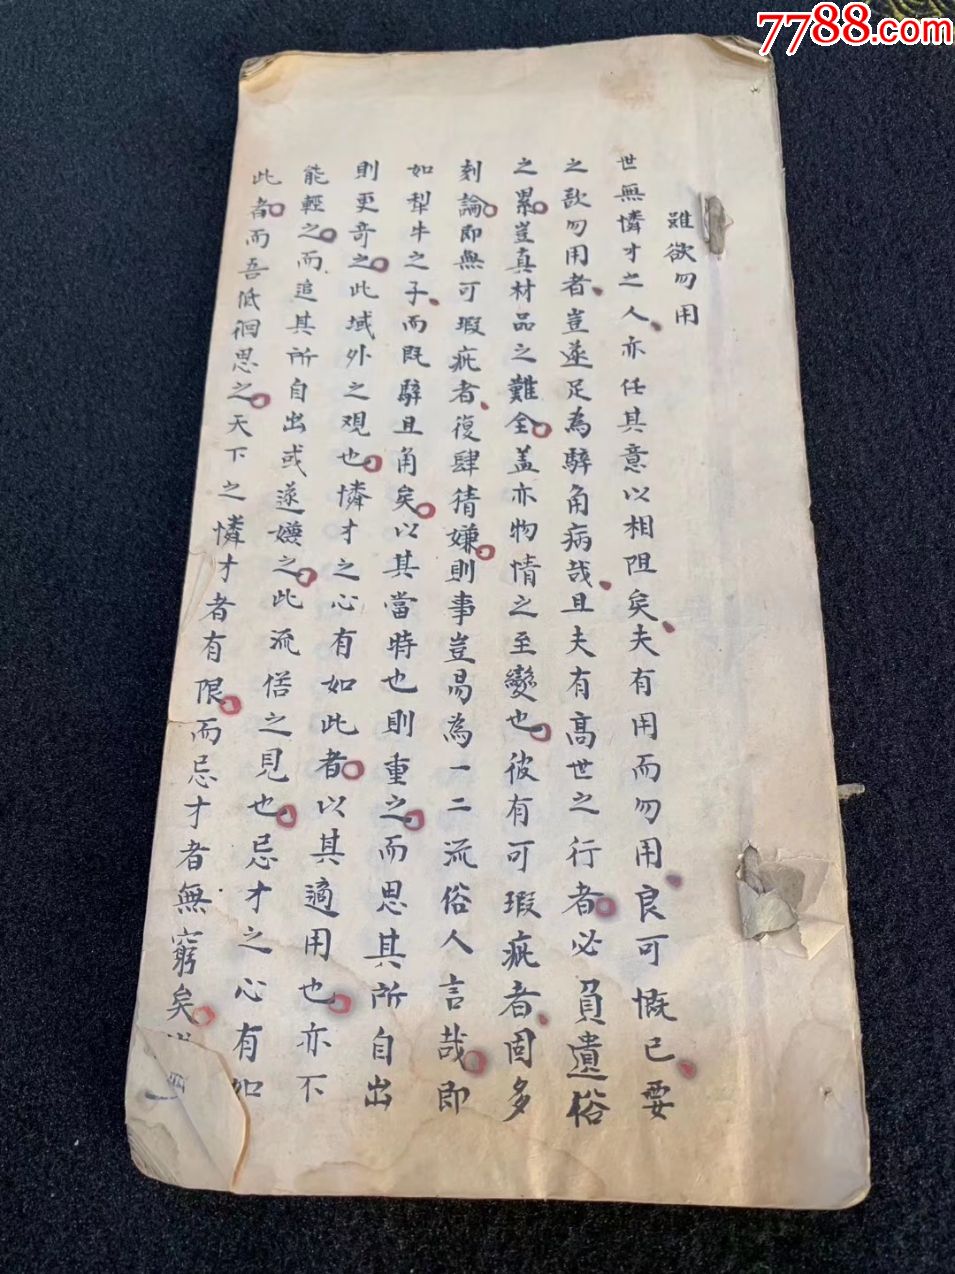 7788.com
雖欲勿用
世無憐才之人亦任其意以相阻矣夫有用而勿用良可慨已要
之欲勿用者豈遂足為騂角病哉且夫有高世之行者必負遺俗
之累豈真材品之難全盖亦物情之至變也彼有可瑕疵者固多
刻論即無可瑕疵者復肆猜嫌則事豈易為一二流俗人言哉即
如犁牛之子而既騂且角矣以其當時也則重之而思其所自出
則更奇之此域外之观也憐才之心有如此者以其適用也亦不
能輕之而追其所自出或遂嫚之此流俗之見也忌才之心有如
此者而吾低徊思之天下之憐才者有限而忌才者無窮矣